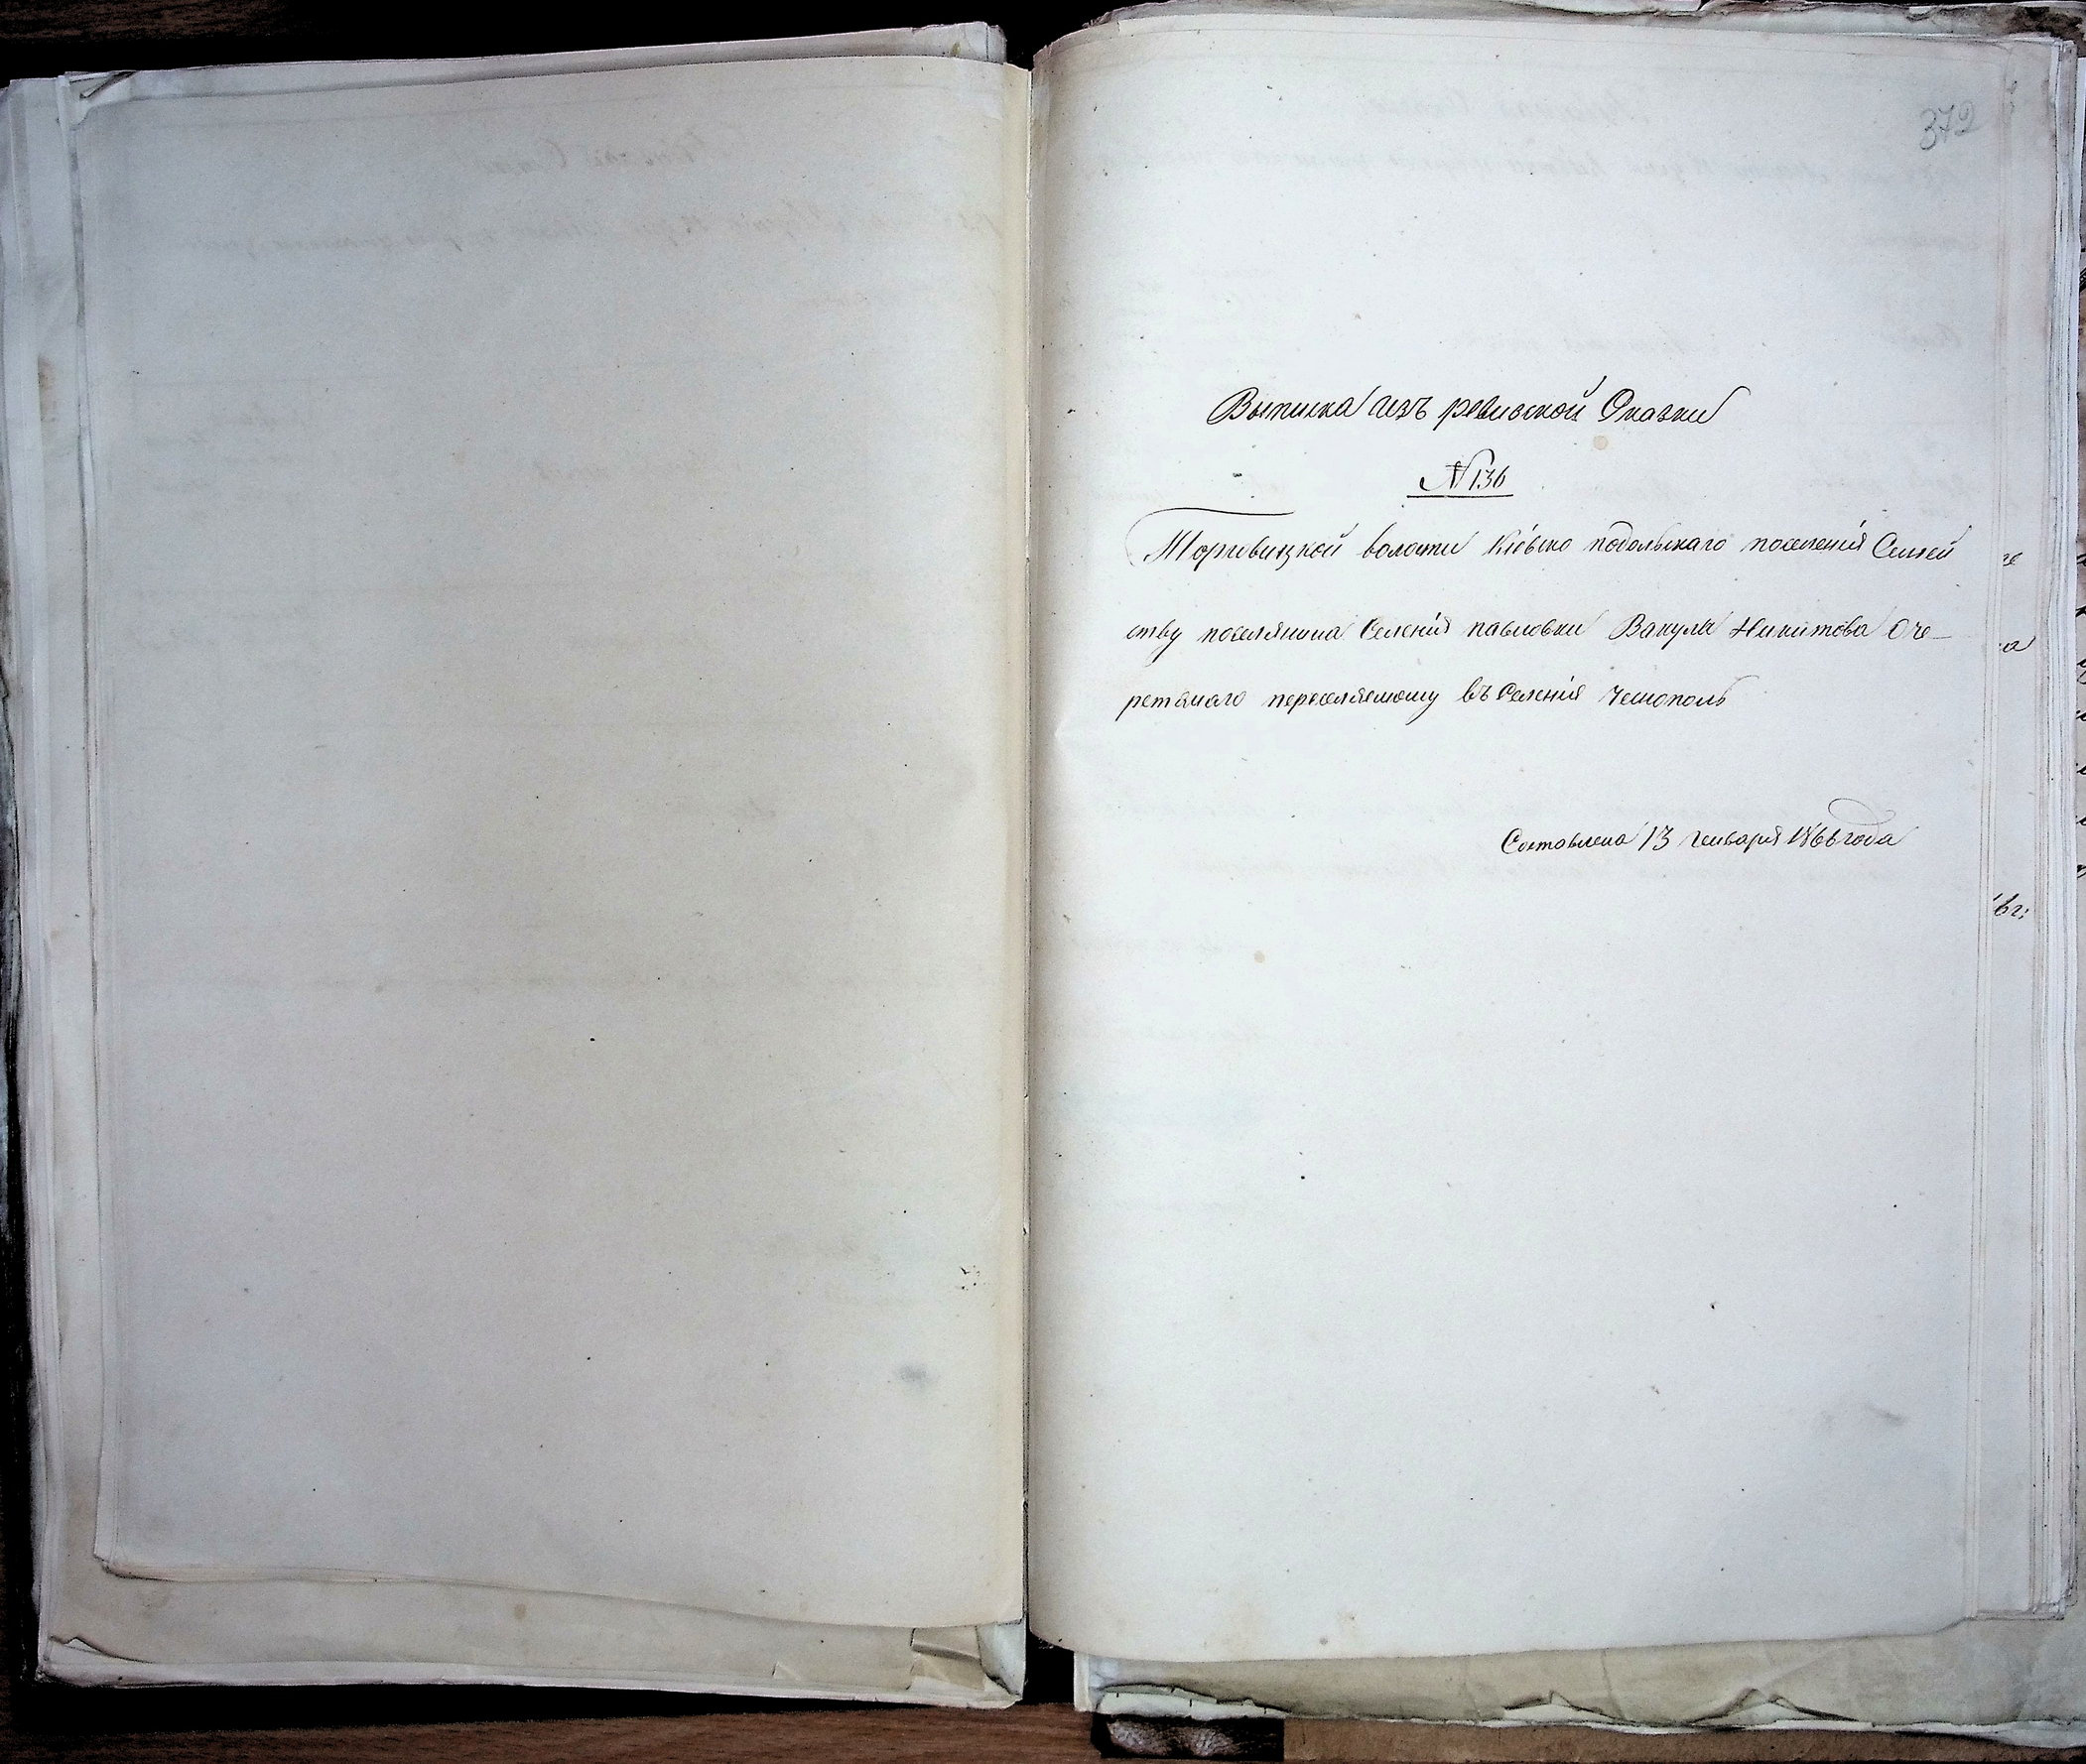 372
Выписка изъ ревизской Сказки
№ 136
Торговицкой волости Кіевско подольскаго поселенія Семей
ству поселянина Селенія павловки Вакулы Никитова Оче–
ретянаго переселяемому въ Селенія Чемополь
Составлена 13 Генваря 1866 года